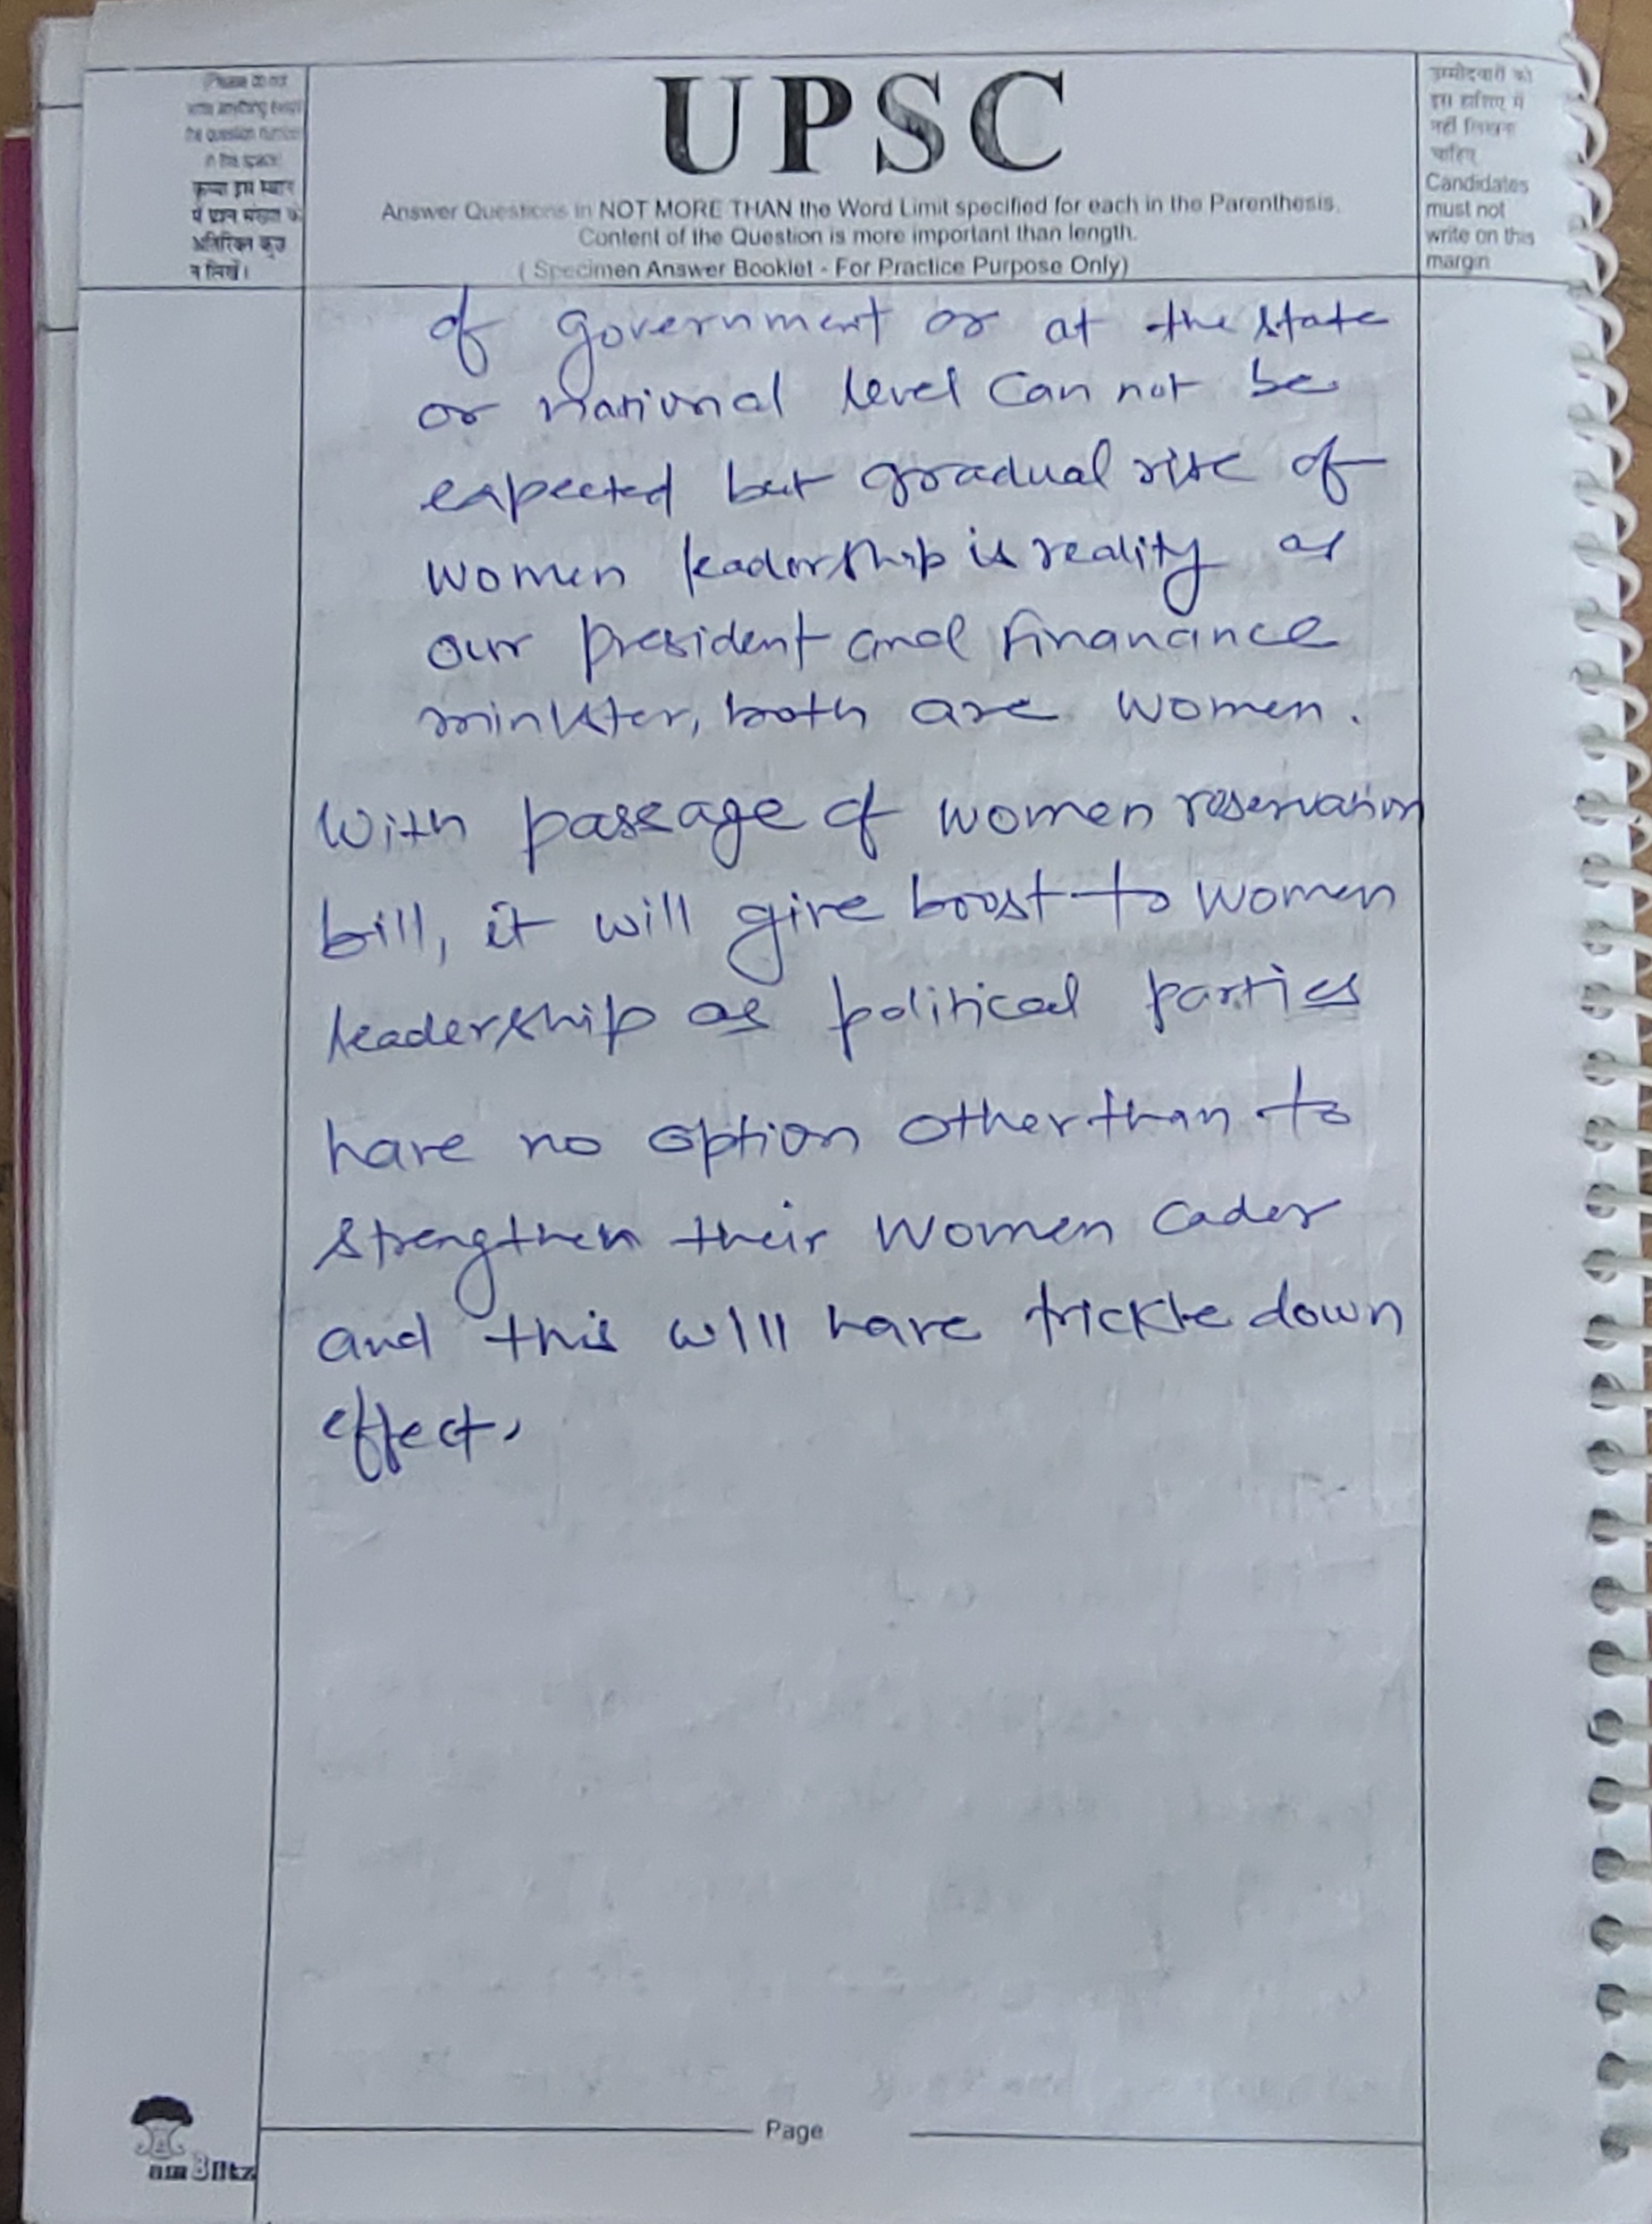 (Please do not
write anything except
the question number
in this space)
कृपया इस स्थान
में प्रश्न संख्या के
अतिरिक्त कुछ
न लिखें।
UPSC
Answer Questions in NOT MORE THAN the Word Limit specified for each in the Parenthesis.
Content of the Question is more important than length.
( Specimen Answer Booklet - For Practice Purpose Only)
उम्मीदवारों को
इस हाशिए में
नहीं लिखना
चाहिए
Candidates
must not
write on this
margin
of government or at the state
or national level can not be
expected but gradual rise of
women leadership is reality as
our president and Finanance
minister, both are women.
With passage of women reservation
bill, it will give boost to women
leadership as political parties
have no option other than to
strengthen their women cader
and this will have trickle down
effect.
Page